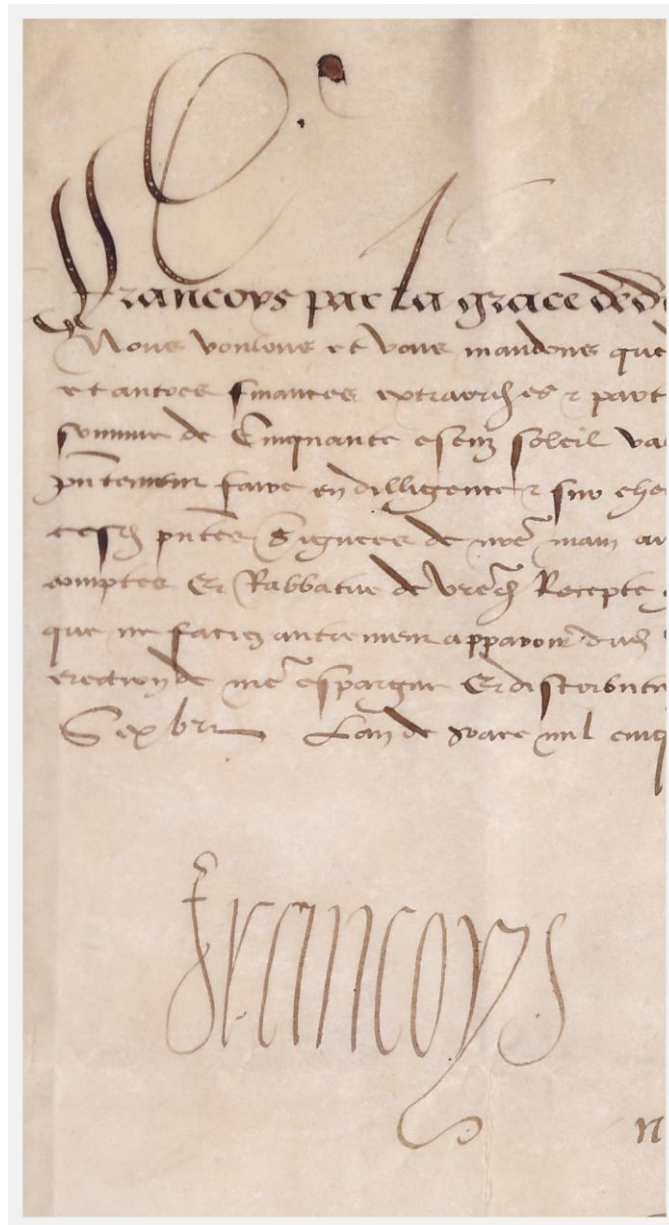 Francoys par la grace de di
Nous voulons et vous mandons que
et autres finances extraord es & part
somme de Cinquante escuz soleil va
pñtement faire en dilligence & sur che
cesd pñtes Signees de nre main
comptes Et Rabbatue de vred Recepte
que ne faciez autrement apparoir dud
erection de nre espargne Et distributi
Septbre Lan de grace mil cinq
Francoys
N